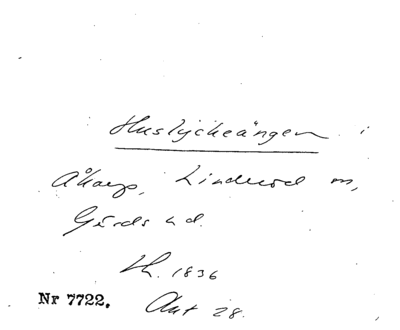 Huslyckeängen i
Åkarp, Linderöd sn,
Gärds hd.
Lh. 1836
Nr 7722. Akt 28.